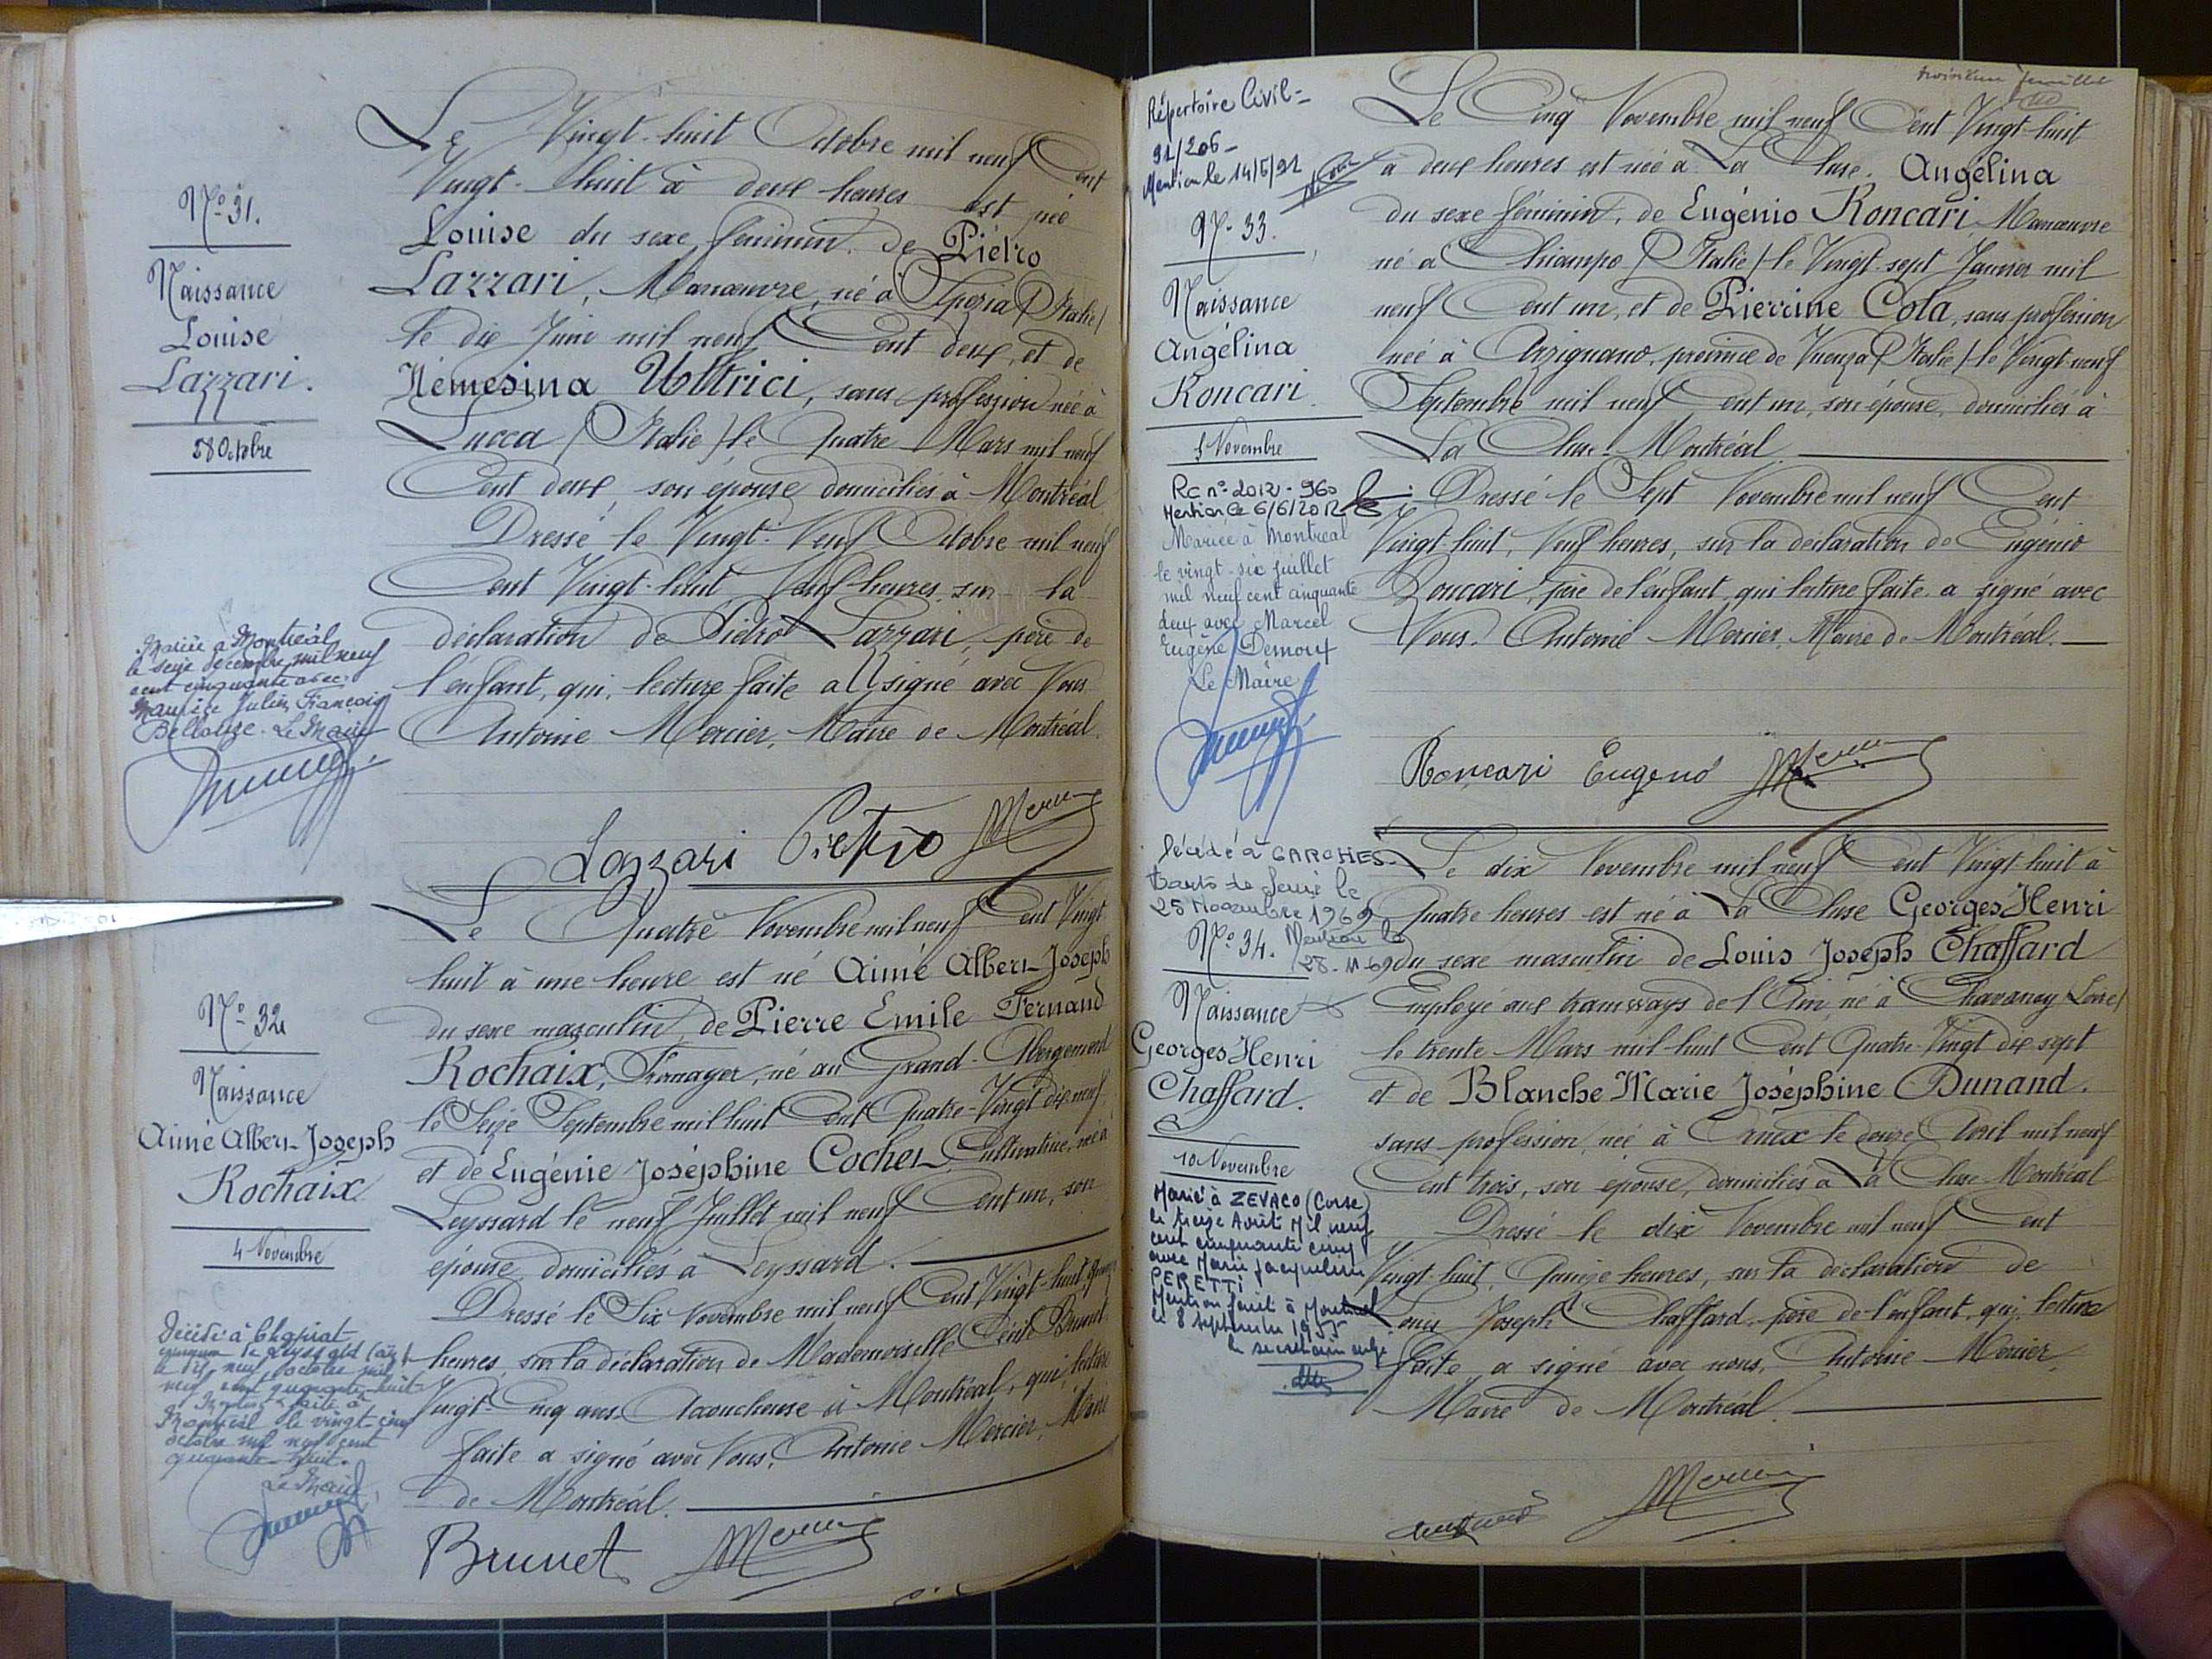 N° 31.
Naissance
Louise
Lazzari.
28 Octobre
Mariée à Montréal
le seize décembre mil neuf
cent cinquante avec
Maurice Julien François
Le Maire
Le Vingt-huit Octobre mil neuf Cent
Vingt-huit à deux heures est née
Louise du sexe féminin, de Piétro
Lazzari, Manœuvre, né à Spezia (Italie)
le dix Juin mil neuf Cent deux, et de
Némésina Uttrici, sans profession née à
Lucca (Italie) le Quatre Mars mil neuf
Cent deux son épouse domiciliés à Montréal
Dressé le Vingt-Neuf Octobre mil neuf
Cent Vingt-huit, Neuf heures, sur la
déclaration de Piétro Lazzari, père de
l'enfant, qui, lecture faite a signé avec Nous
Antoine Mercier, Maire de Montréal.
Lazzari Pietro Mercier
N° 32
Naissance
Aimé Albert-Joseph
Rochaix
4 Novembre
Décédé à Chapiat
commune de Leyssard (Ain)
le dix neuf octobre mil
neuf cent quarante-huit
Mention faite à
Montréal le vingt-cinq
octobre mil neuf cent
quarante-huit.
Le Maire
Le Quatre Novembre mil neuf Cent Vingt
huit à une heure est né Aimé Albert-Joseph
du sexe masculin, de Pierre Emile Fernand
Rochaix, Fromager, né au Grand-Abergement
le Seize Septembre mil huit Cent Quatre-Vingt dix neuf
et de Eugénie Joséphine Cochet, Cultivatrice, née à
Leyssard le neuf Juillet mil neuf Cent un, son
épouse domiciliés à Leyssard.
Dressé le Six Novembre mil neuf Cent Vingt-huit, Quinze
heures, sur la déclaration de Mademoiselle Cécile Brunet
Vingt-Cinq ans, Accoucheuse à Montréal, qui, lecture
faite a signé avec Nous, Antoine Mercier, Maire
de Montréal.
Brunet Mercier
troisième feuillet
Répertoire Civil-
91/206-
Mention le 14/5/91
N° 33.
Naissance
Angélina
Roncari
5 Novembre
RC n° 2012-960
Mention le 6/6/2012
Mariée à Montréal
le vingt-six juillet
mil neuf cent cinquante
deux avec Marcel
Eugène Demoux
Le Maire
Le Cinq Novembre mil neuf Cent Vingt-huit
à deux heures est née à La Cluse. Angélina
du sexe féminin, de Eugénio Roncari, Manœuvre
né à Chiampo (Italie) le Vingt-sept Janvier mil
neuf Cent un, et de Pierrine Cola, sans profession
née à Arzignano, province de Vicenza (Italie) le Vingt-neuf
Septembre mil neuf Cent un, son épouse, domiciliés à
La Cluse-Montréal
Dressé le Sept Novembre mil neuf Cent
Vingt-huit, Neuf heures, sur la déclaration de Eugénio
Roncari, père de l'enfant, qui lecture faite a signé avec
Nous. Antoine Mercier, Maire de Montréal.
Roncari Eugenio Mercier
Décédé à GARCHES
25 Novembre 1969
Mention le
28-11-69
N° 34.
Naissance
Georges Henri
Chaffard.
10 Novembre
Marié à ZEVACO (Corse)
le treize Août Mil neuf
cent cinquante cinq
avec Marie Jacqueline
PERETTI
Mention faite à Montréal
le 8 septembre 1955
le secrétaire
Le dix Novembre mil neuf Cent Vingt-huit à
Quatre heures est né à La Cluse Georges Henri
du sexe masculin de Louis Joseph Chaffard
Employé aux tramways de l'Ain, né à Chavanay (Loire)
le trente Mars mil-huit Cent Quatre-Vingt dix sept
et de Blanche Marie Joséphine Dunand.
sans profession, née à le Avril mil neuf
Cent trois, son épouse, domiciliés à La Cluse-Montréal
Dressé le dix Novembre mil neuf Cent
Vingt-huit, Quinze heures, sur la déclaration de
Louis Joseph Chaffard, père de l'enfant, qui, lecture
faite a signé avec nous, Antoine Mercier
Maire de Montréal.
Mercier